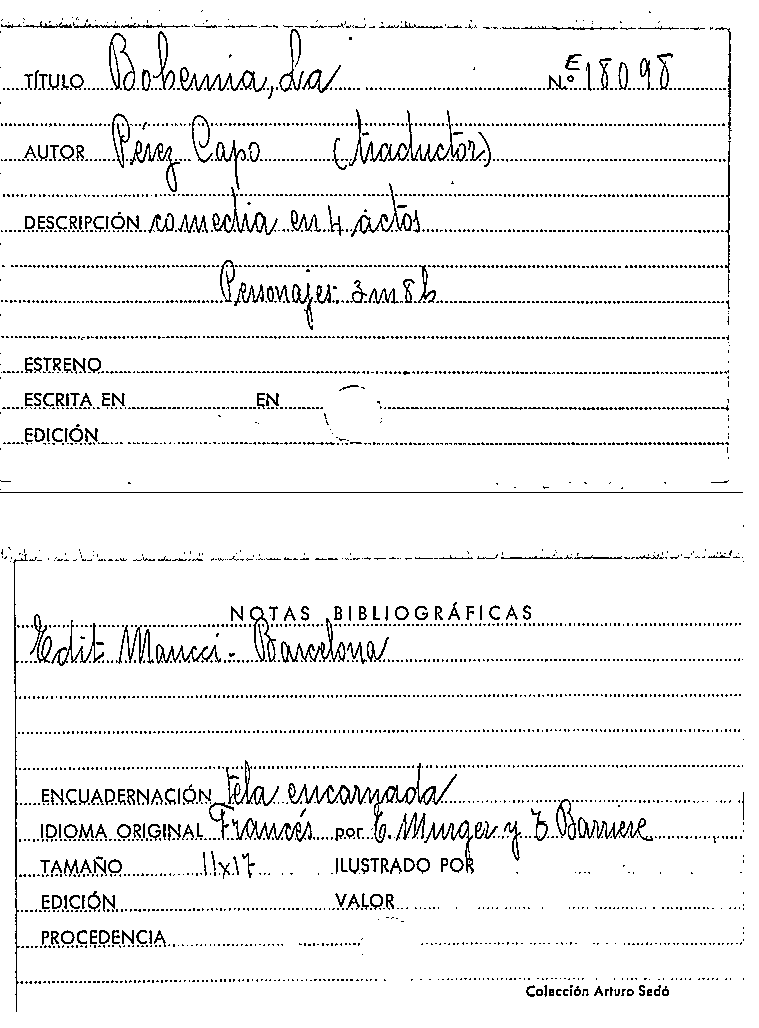 TÍTULO Bohemia, La N.º E 18098
AUTOR Pérez Capo (traductor)
DESCRIPCIÓN comedia en 4 actos
Personajes: 3m 8h
ESTRENO
ESCRITA EN EN
EDICIÓN
NOTAS BIBLIOGRÁFICAS
Edit Maucci - Barcelona
ENCUADERNACIÓN tela encarnada
IDIOMA ORIGINAL Francés por E. Murger y T Barriere
TAMAÑO 11x17 ILUSTRADO POR
EDICIÓN VALOR
PROCEDENCIA
Colección Arturo Sedó